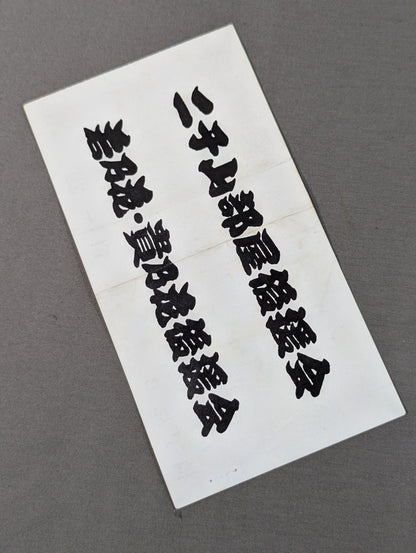 二子山部屋後援会
若乃花・貴乃花後援会